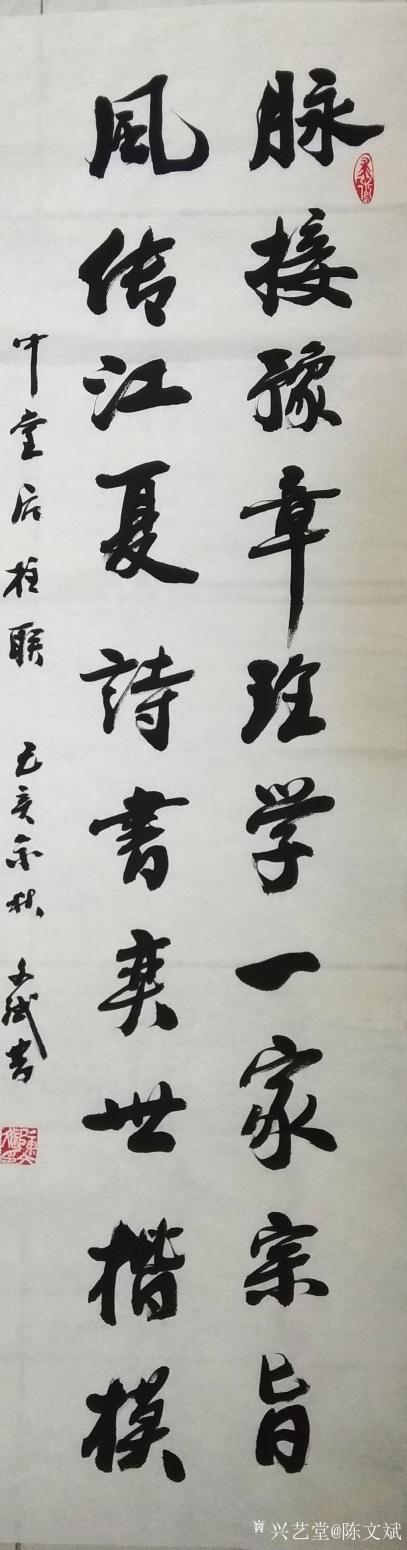 脉接豫章理学一家宗旨
風传江夏詩書奕世楷模
中堂后柱联 己亥金秋 文斌书
兴艺堂@陈文斌